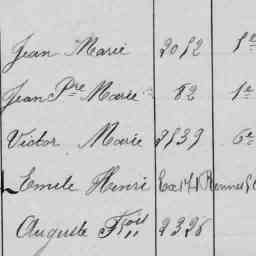 Jean Marie 2052 5e
Jean Pre Marie 82 1e
Victor Marie 2539 6e
Emile Henri Rennes
Auguste Fçois 2326